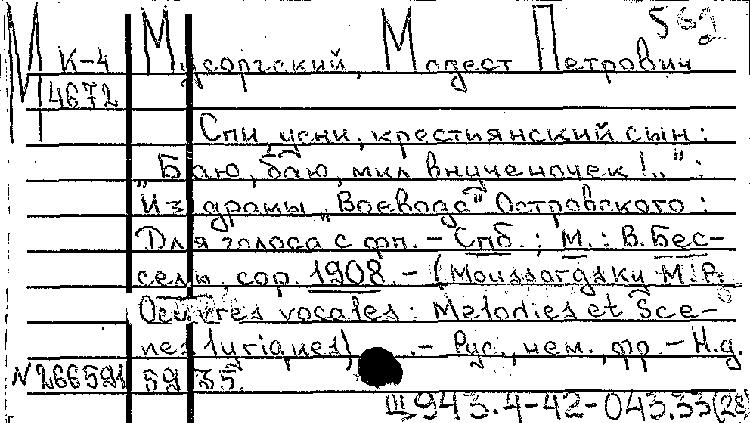 569
К-4 Мусоргский, Модест Петрович
4672
Спи, усни, крестиянский сын:
„Баю, баю, мил внученочек!.." :
Из драмы „Воевода" Островского :
Для голоса с фп. – Спб. ; М. : В. Бес-
сель, cop. 1908. – (Moussorgsky M.P.
Oeuvres vocales : Melodies et Sce-
nes lyriques) .– Рус., нем., фр. – Н.д.
N 266591 5935.
III 943.4-42-043.33(28)